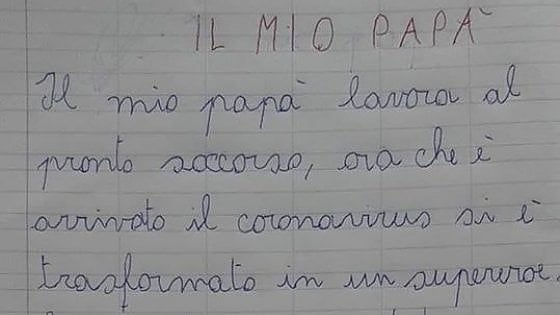 IL MIO PAPÀ
Il mio papà lavora al
pronto soccorso, ora che è
arrivato il coronavirus si è
trasformato in un supereroe.